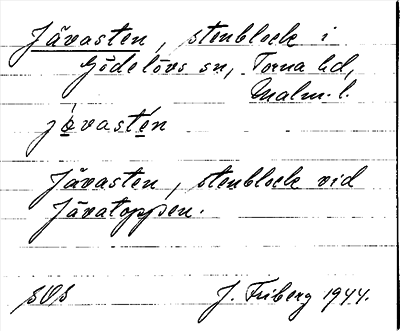 Jävasten, stenblock i
Gödelövs sn, Torna hd,
Malm. l.
jävastén
Jävasten, stenblock vid
Jävatoppen.
SOS J. Friberg 1944.